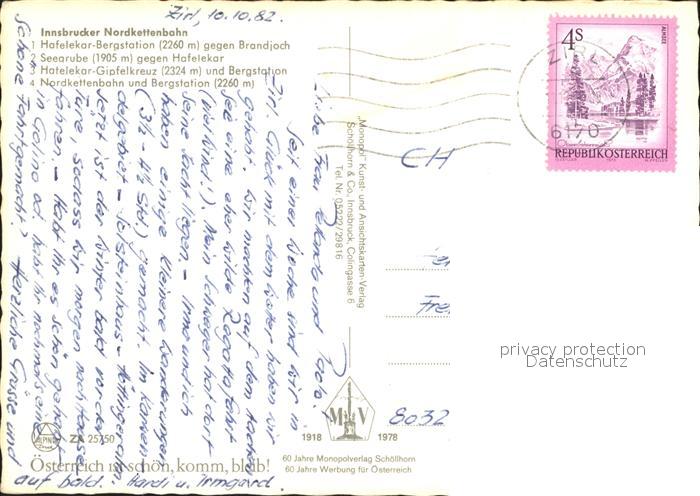 Zirl, 10.10.82.
Innsbrucker Nordkettenbahn
1 Hafelekar-Bergstation (2260 m) gegen Brandjoch
2 Seegrube (1905 m) gegen Hafelekar
3 Hafelekar-Gipfelkreuz (2324 m) und Bergstation
4 Nordkettenbahn und Bergstation (2260 m)
Liebe Frau und
Seit einer Woche sind wir in
Zirl. Glück mit dem Wetter haben wir
gehabt. Wir machten auf dem
See eine eher wilde Regattafahrt
(viel Wind!). Mein Schwager hat dort
seine Yacht liegen. - Irmg und ich
haben einige kleinere Wanderungen
(3½ 4½ Std.) gemacht. Im
- Solsteinhaus - Höttingeralm
Jetzt ist der Winter bald vor der
Türe, sodass wir morgen nach Hause
fahren. - Habt Ihr es schön gehabt
in od. habt Ihr nochmals eine
schöne Fahrt gemacht? Herzliche Grüsse und
auf bald. Hardi u. Irmgard.
"Monopol" Kunst- und Ansichtskarten-Verlag
Schöllhorn & Co. Innsbruck, Colingasse 6
Tel. Nr. 05222/29816
4S
ALMSEE
REPUBLIK ÖSTERREICH
ZIRL
6170
CH
Fre
8032
MV
1918 1978
60 Jahre Monopolverlag Schöllhorn
60 Jahre Werbung für Österreich
ALPINA
Druck
ZA 25750
Österreich ist schön, komm, bleib!
privacy protection
Datenschutz